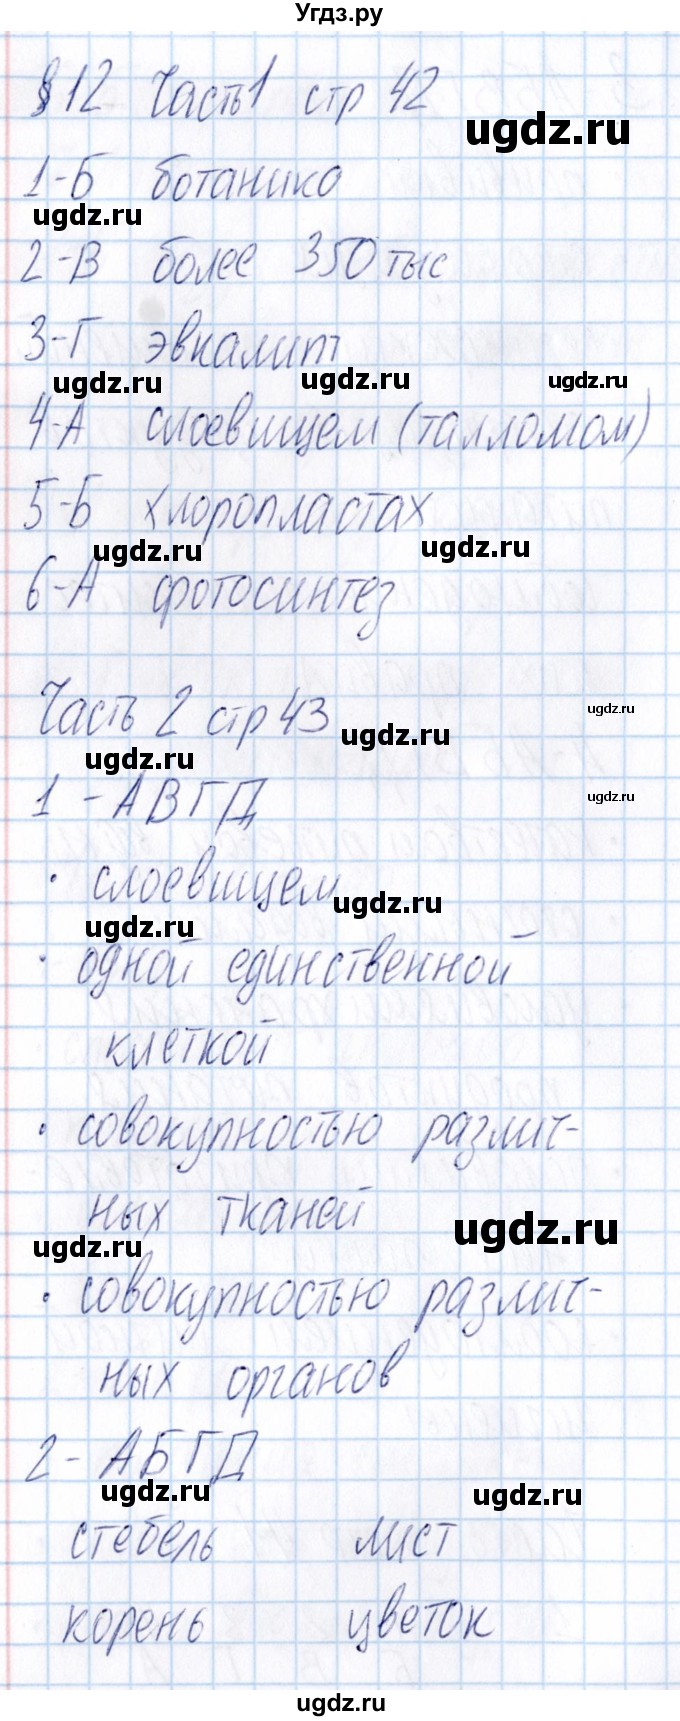 Угдз.ру
§12 Часть 1 стр 42
ugdz.ru
1-Б ботаника
ugdz.ru
2-В более 350 тыс
3-Г эвкалипт
ugdz.ru ugdz.ru ugdz.ru
4-А слоевищем (талломом)
5-Б хлоропластах
ugdz.ru ugdz.ru
6-А фотосинтез
Часть 2 стр 43
ugdz.ru
ugdz.ru
ugdz.ru
1 - АВГД
ugdz.ru
· слоевищем
ugdz.ru
ugdz.ru
· одной единственной
клеткой
· совокупностью различ-
ных тканей
ugdz.ru
ugdz.ru
· совокупностью различ-
ных органов
2 - АБГД
ugdz.ru ugdz.ru
стебель лист
корень цветок
ugdz.ru